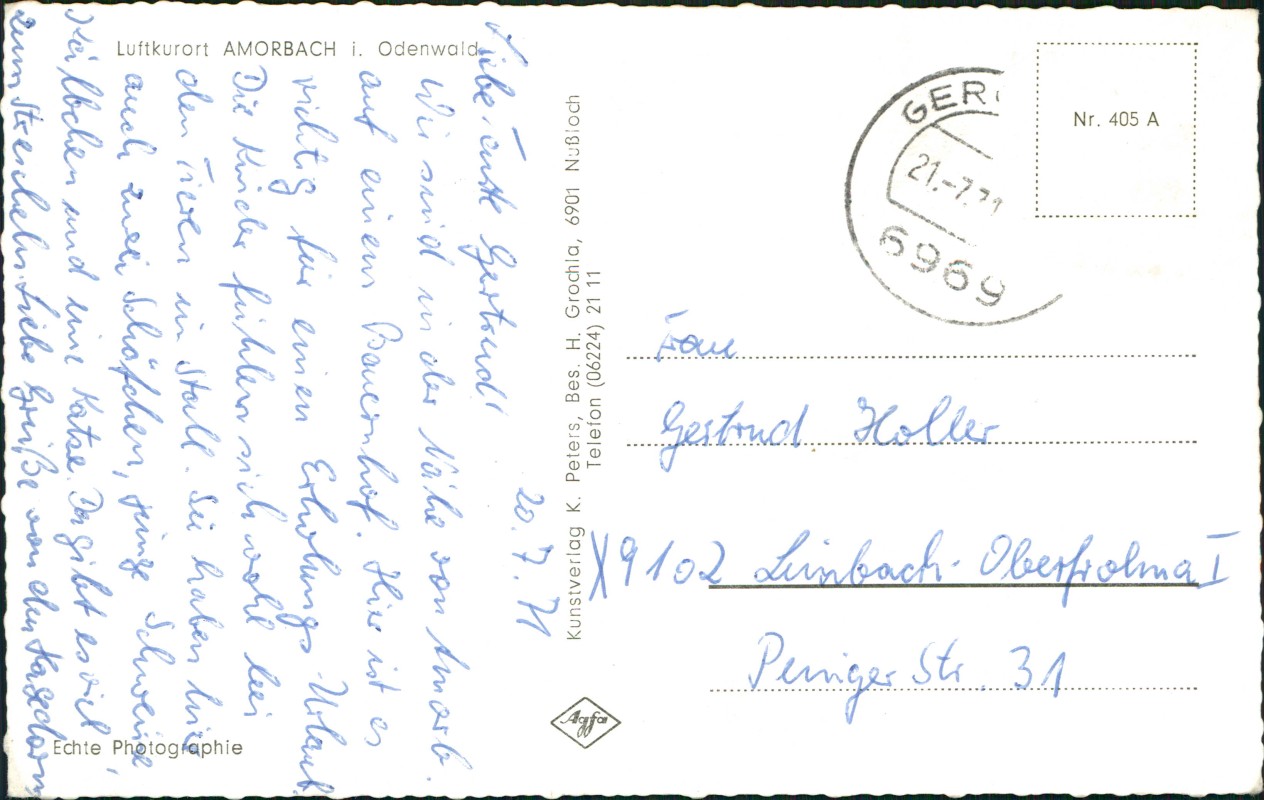 Luftkurort AMORBACH i. Odenwald
20. 7. 71
Liebe Tante Gertrud!
Wir sind in der Nähe von Amorb.
auf einem Bauernhof. Hier ist es
richtig für einen Erholungs-Urlaub.
Die Kinder fühlen sich wohl bei
den Tieren im Stall. Sie haben hier
auch zwei Schäfchen, junge Schweine,
Kälbchen und eine Katze. Da gibt es viel
zum Streicheln. Liebe Grüße von den
Echte Photographie
Kunstverlag K. Peters, Bes. H. Grochla, 6901 Nußloch
Telefon (06224) 21 11
Agfa
GER
21.-7.71
6969
Nr. 405 A
Frau
Gertrud Holler
X9102 Limbach-Oberfrohna I
Peniger Str. 31